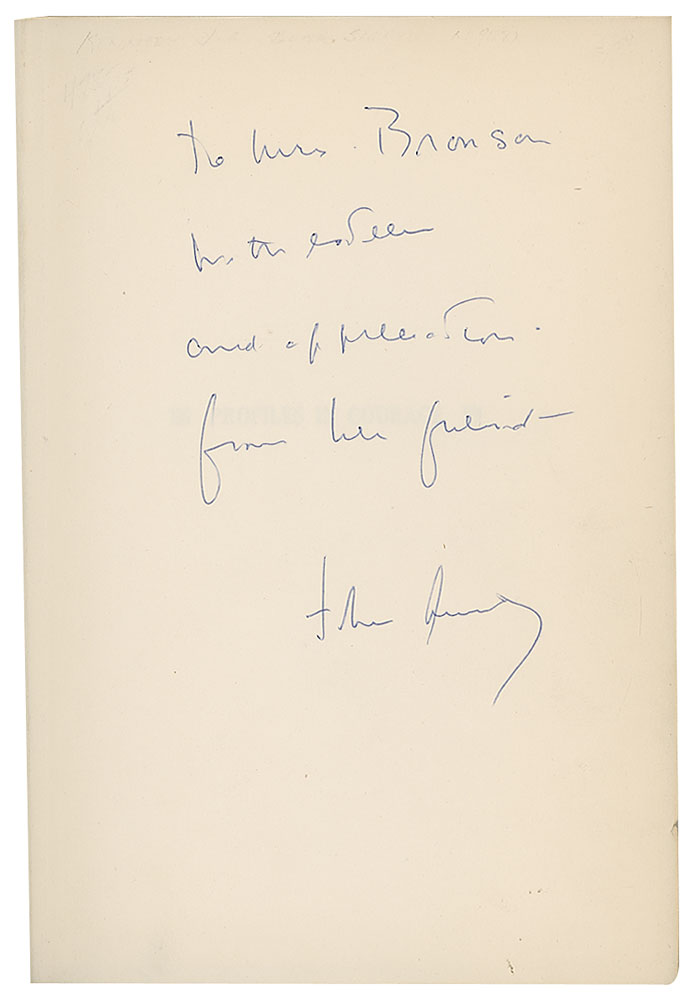 To Mrs. Bronson
with esteem
and appreciation.
PROFILES IN COURAGE
from her friend—
John Kennedy